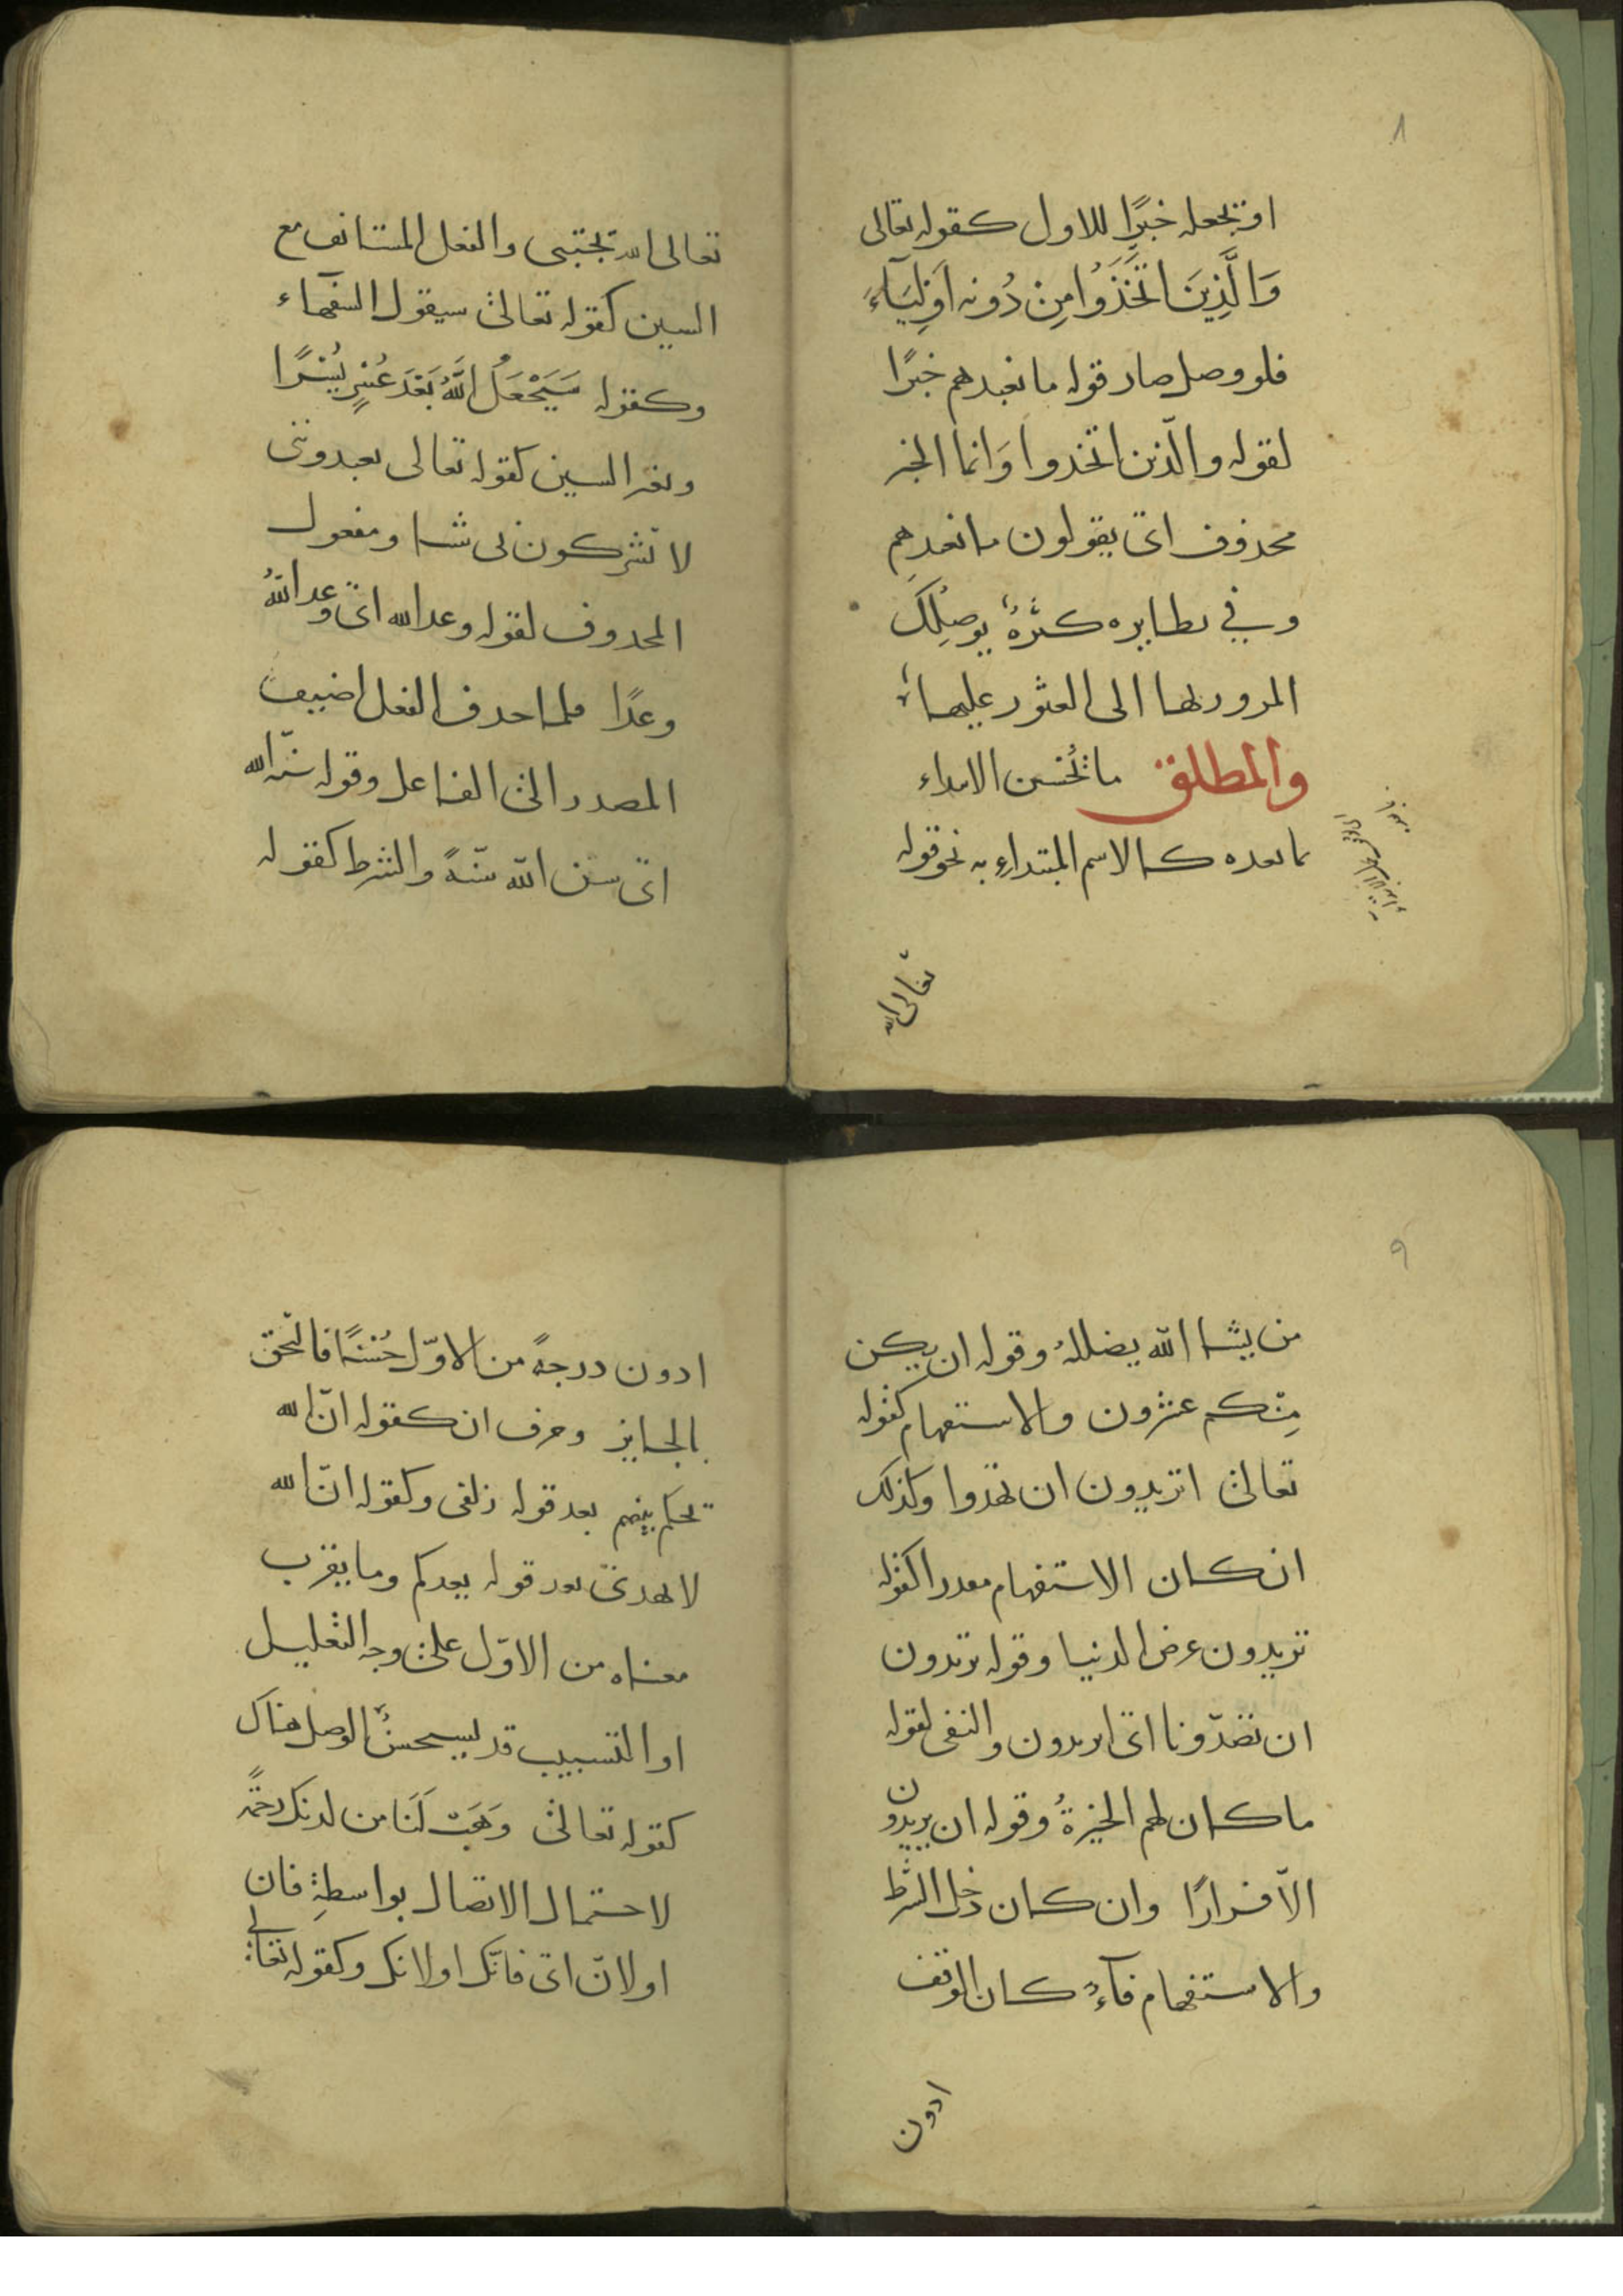 ٨
او تجعله خبرًا للاول كقوله تعالى
وَالَّذِينَ اتَّخَذُوا مِنْ دُونِه اَوْلِيَآءَ
فلو وصل صار قوله ما نعبدهم خبرًا
لقوله والّذين اتخذوا وَانما الخبر
محذوف اى يقولون ما نعبدهم
وفي نظايره كثرةٌ يوصِلُكَ
المرور بها الى العثور عليها
والمطلق ما يَحْسن الابتداء
بما بعده كالاسم المبتداءِ به نحو قوله
تعالى الله
تعالى الله يجتبى والفعل المستانف مع
السين كقوله تعالى سيقول السفهاء
وكقوله سَيَجْعَلُ اللَّهُ بَعْدَ عُسْرٍ يُسْرًا
وبغير السين كقوله تعالى يعبدوننى
لا يشركون بى شيا ومفعول
المحذوف كقوله وعد الله اى وعد اللهُ
وعدًا فلما حذف الفعل اضيف
المصدر الى الفاعل وقوله سنّة الله
اى سنّ الله سنّةً والشرط كقوله
٩
من يشا الله يضللهُ وقوله ان يكن
مِنْكم عشرون والاستفهام كقوله
تعالى اتريدون ان تهدوا وكذلك
ان كان الاستفهام مقدرا كقوله
تريدون عرض الدنيا وقوله تريدون
ان تصدّونا اى اتريدون والنفى كقوله
ما كان لهم الخيرةُ وقوله ان يريدون
الاّ فرارًا وان كان دخل الشرط
والاستفهام فآءٌ كان الوقف
ادون
ادون درجةً من الاوّل حُسْنًا فالتحق
بالجايز وحرف ان كقوله انّ الله
يحكم بينهم بعد قوله زلفى وكقوله انّ الله
لا يهدى بعد قوله يعدكم وما يقرب
معناه من الاوّل على وجه التعليل
او التسبيب قد يستحسنُ الوصل هناك
كقوله تعالى وَهَبْ لَنَا من لدنك رحمةً
لاحتمال الاتصال بواسطةِ فان
او لانّ اى فانّك او لانك وكقوله تعالى